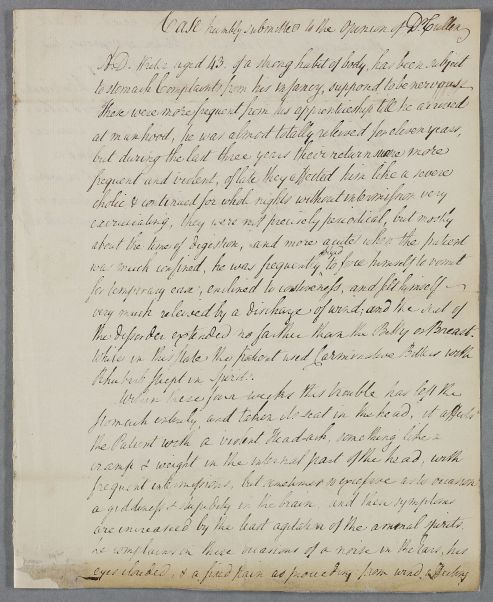 Case humbly submitted to the Opinion of Dr. Cullen
A. D. Writer aged 43. of a strong habit of body, has been subject
to stomach Complaints from his infancy, suppos'd to be nervous.
These were more frequent from his apprenticeship till he arrived
at manhood, he was almost totally relieved for eleven years,
but during the last three years their return were more
frequent and violent, of late they effected him like a severe
cholic & continued for whole nights without intermission very
excruciating, they were not precisely periodical, but mostly
about the time of digestion, and more acute when the patient
was much confined, he was frequently oblidg'd to force himself to vomit
for temporary ease, enclined to costiveness, and felt himself
very much relieved by a discharge of wind, and the seat of
the disorder extended no farther than the Belly or Breast.
While in this state the patient used Carminative Bitters with
Rhubarb steept in spirits.
Within these four weeks this trouble has left the
stomach entirely, and taken its seat in the head, it affects
the Patient with a violent Headach, something like a
cramp & weight in the internal part of the head, with
frequent intermissions, but sometimes so excessive as to occasion
a giddiness & stupidity in the brain, and these symptoms
are increased by the least agitation of the animal spirits.
he complains in these occasions of a noise in the Ears, his
eyes clouded, & a fixed pain as proceeding from wind,